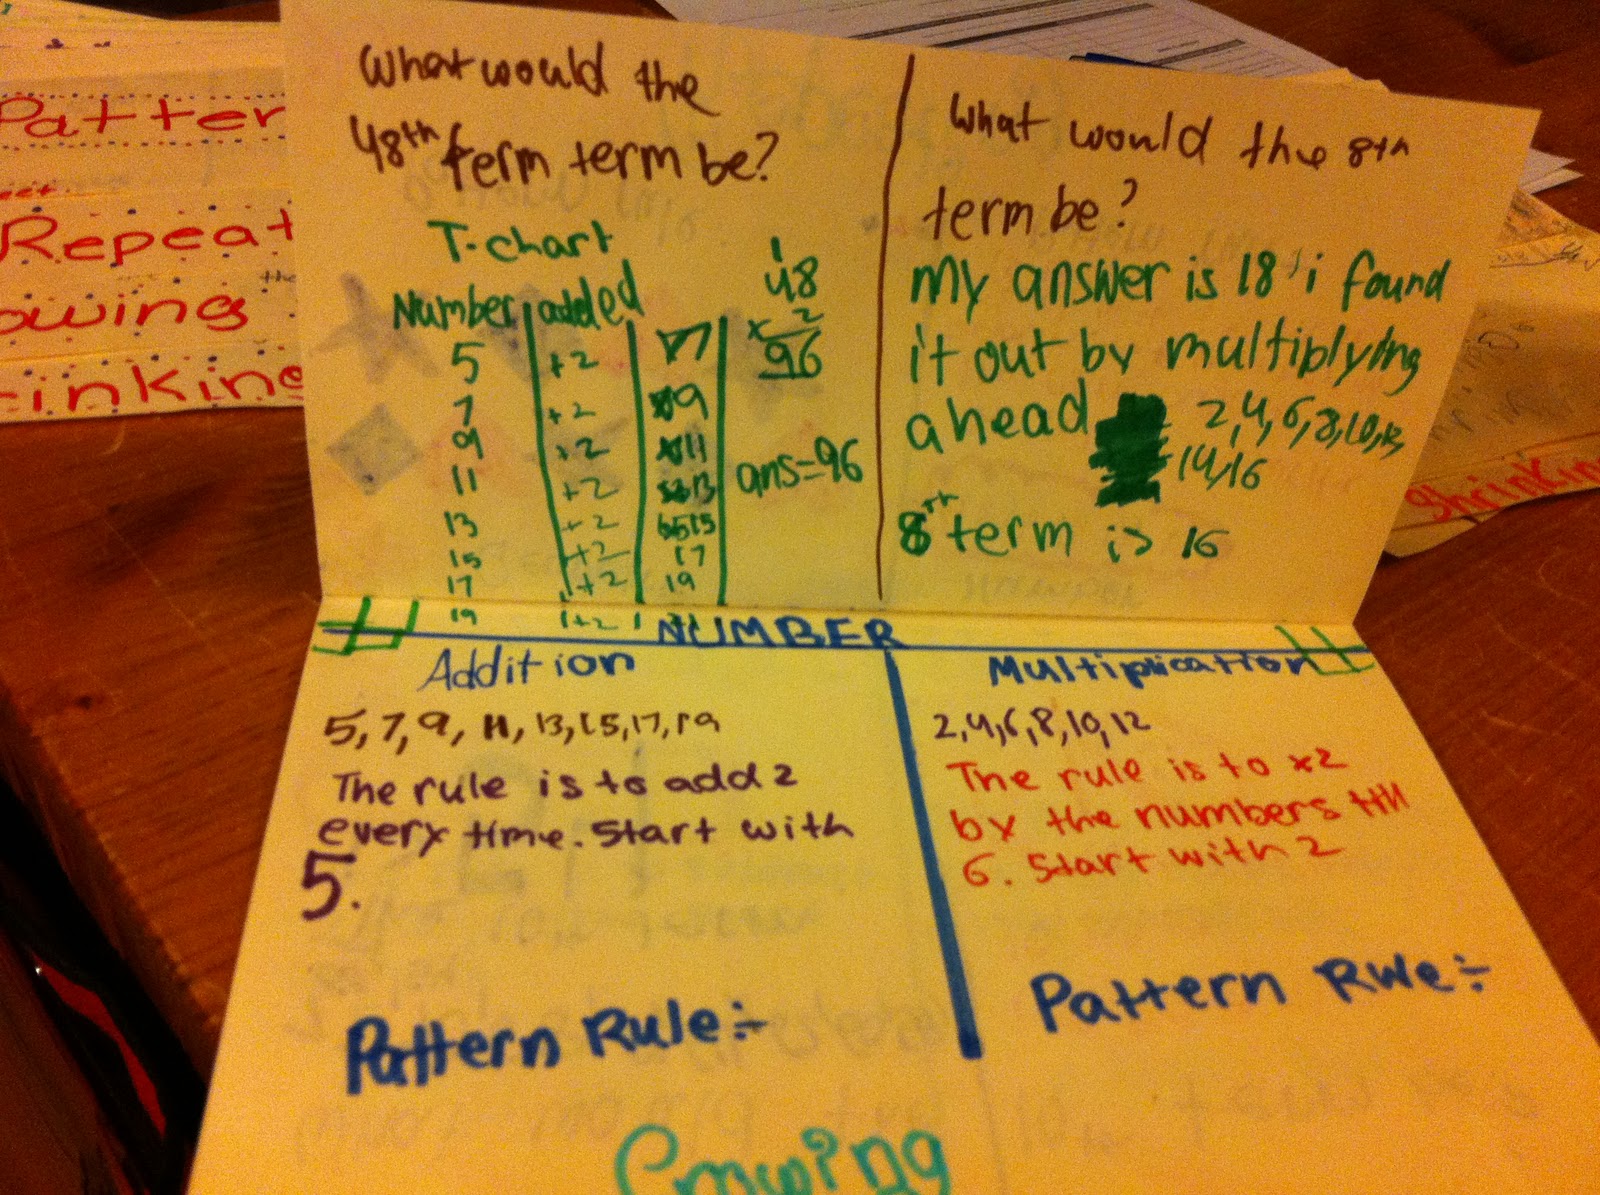 Patter
Repeat
owing
rinking
What would the
48th term term be?
T-chart
Number added
5 +2 7
7 +2 9
9 +2 11
11 +2 13
13 +2 15
15 +2 17
17 +2 19
19 +2
1
48
× 2
96
ans=96
What would the 8th
term be?
My answer is 18, i found
it out by multiplying
ahead 2,4,6,8,10,12,
14,16
8th term is 16
NUMBER
Addition
5,7,9,11,13,15,17,19
The rule is to add 2
every time. Start with
5.
Pattern Rule:-
Multiplication
2,4,6,8,10,12
The rule is to ×2
by the numbers till
6. Start with 2
Pattern Rule:-
Growing
Shrinkin